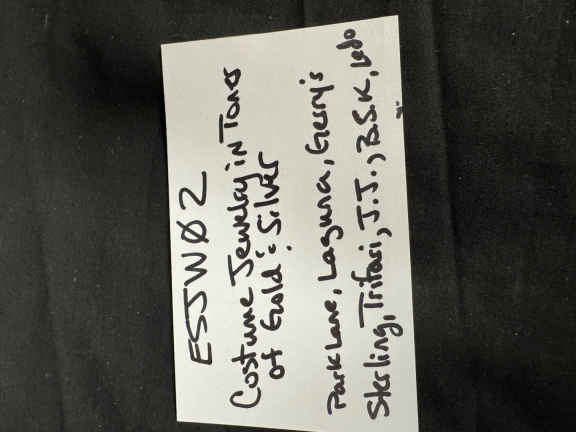 ESJWØ2
Costume Jewelry in Tones
of Gold & Silver
Park Lane, Laguna, Gerry's
Sterling, Trifari, J.J., B.S.K, Ledo